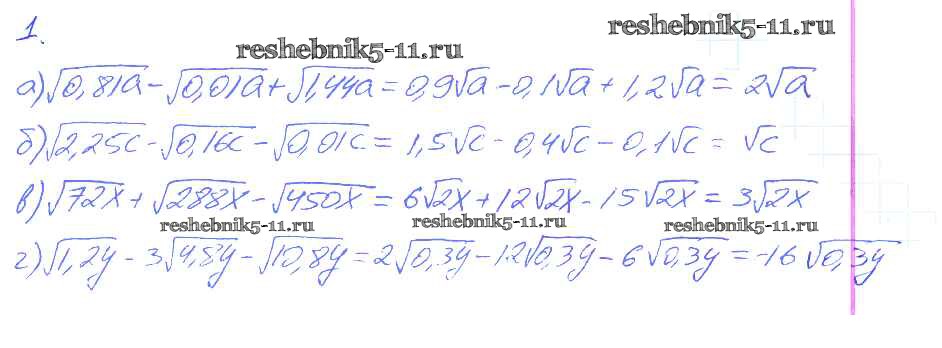 1.
reshebnik5-11.ru
reshebnik5-11.ru
а) √0,81a - √0,01a + √1,44a = 0,9√a - 0,1√a + 1,2√a = 2√a
б) √2,25c - √0,16c - √0,01c = 1,5√c - 0,4√c - 0,1√c = √c
в) √72x + √288x - √450x = 6√2x + 12√2x - 15√2x = 3√2x
reshebnik5-11.ru reshebnik5-11.ru reshebnik5-11.ru
г) √1,2y - 3√4,8y - √10,8y = 2√0,3y - 12√0,3y - 6√0,3y = -16√0,3y